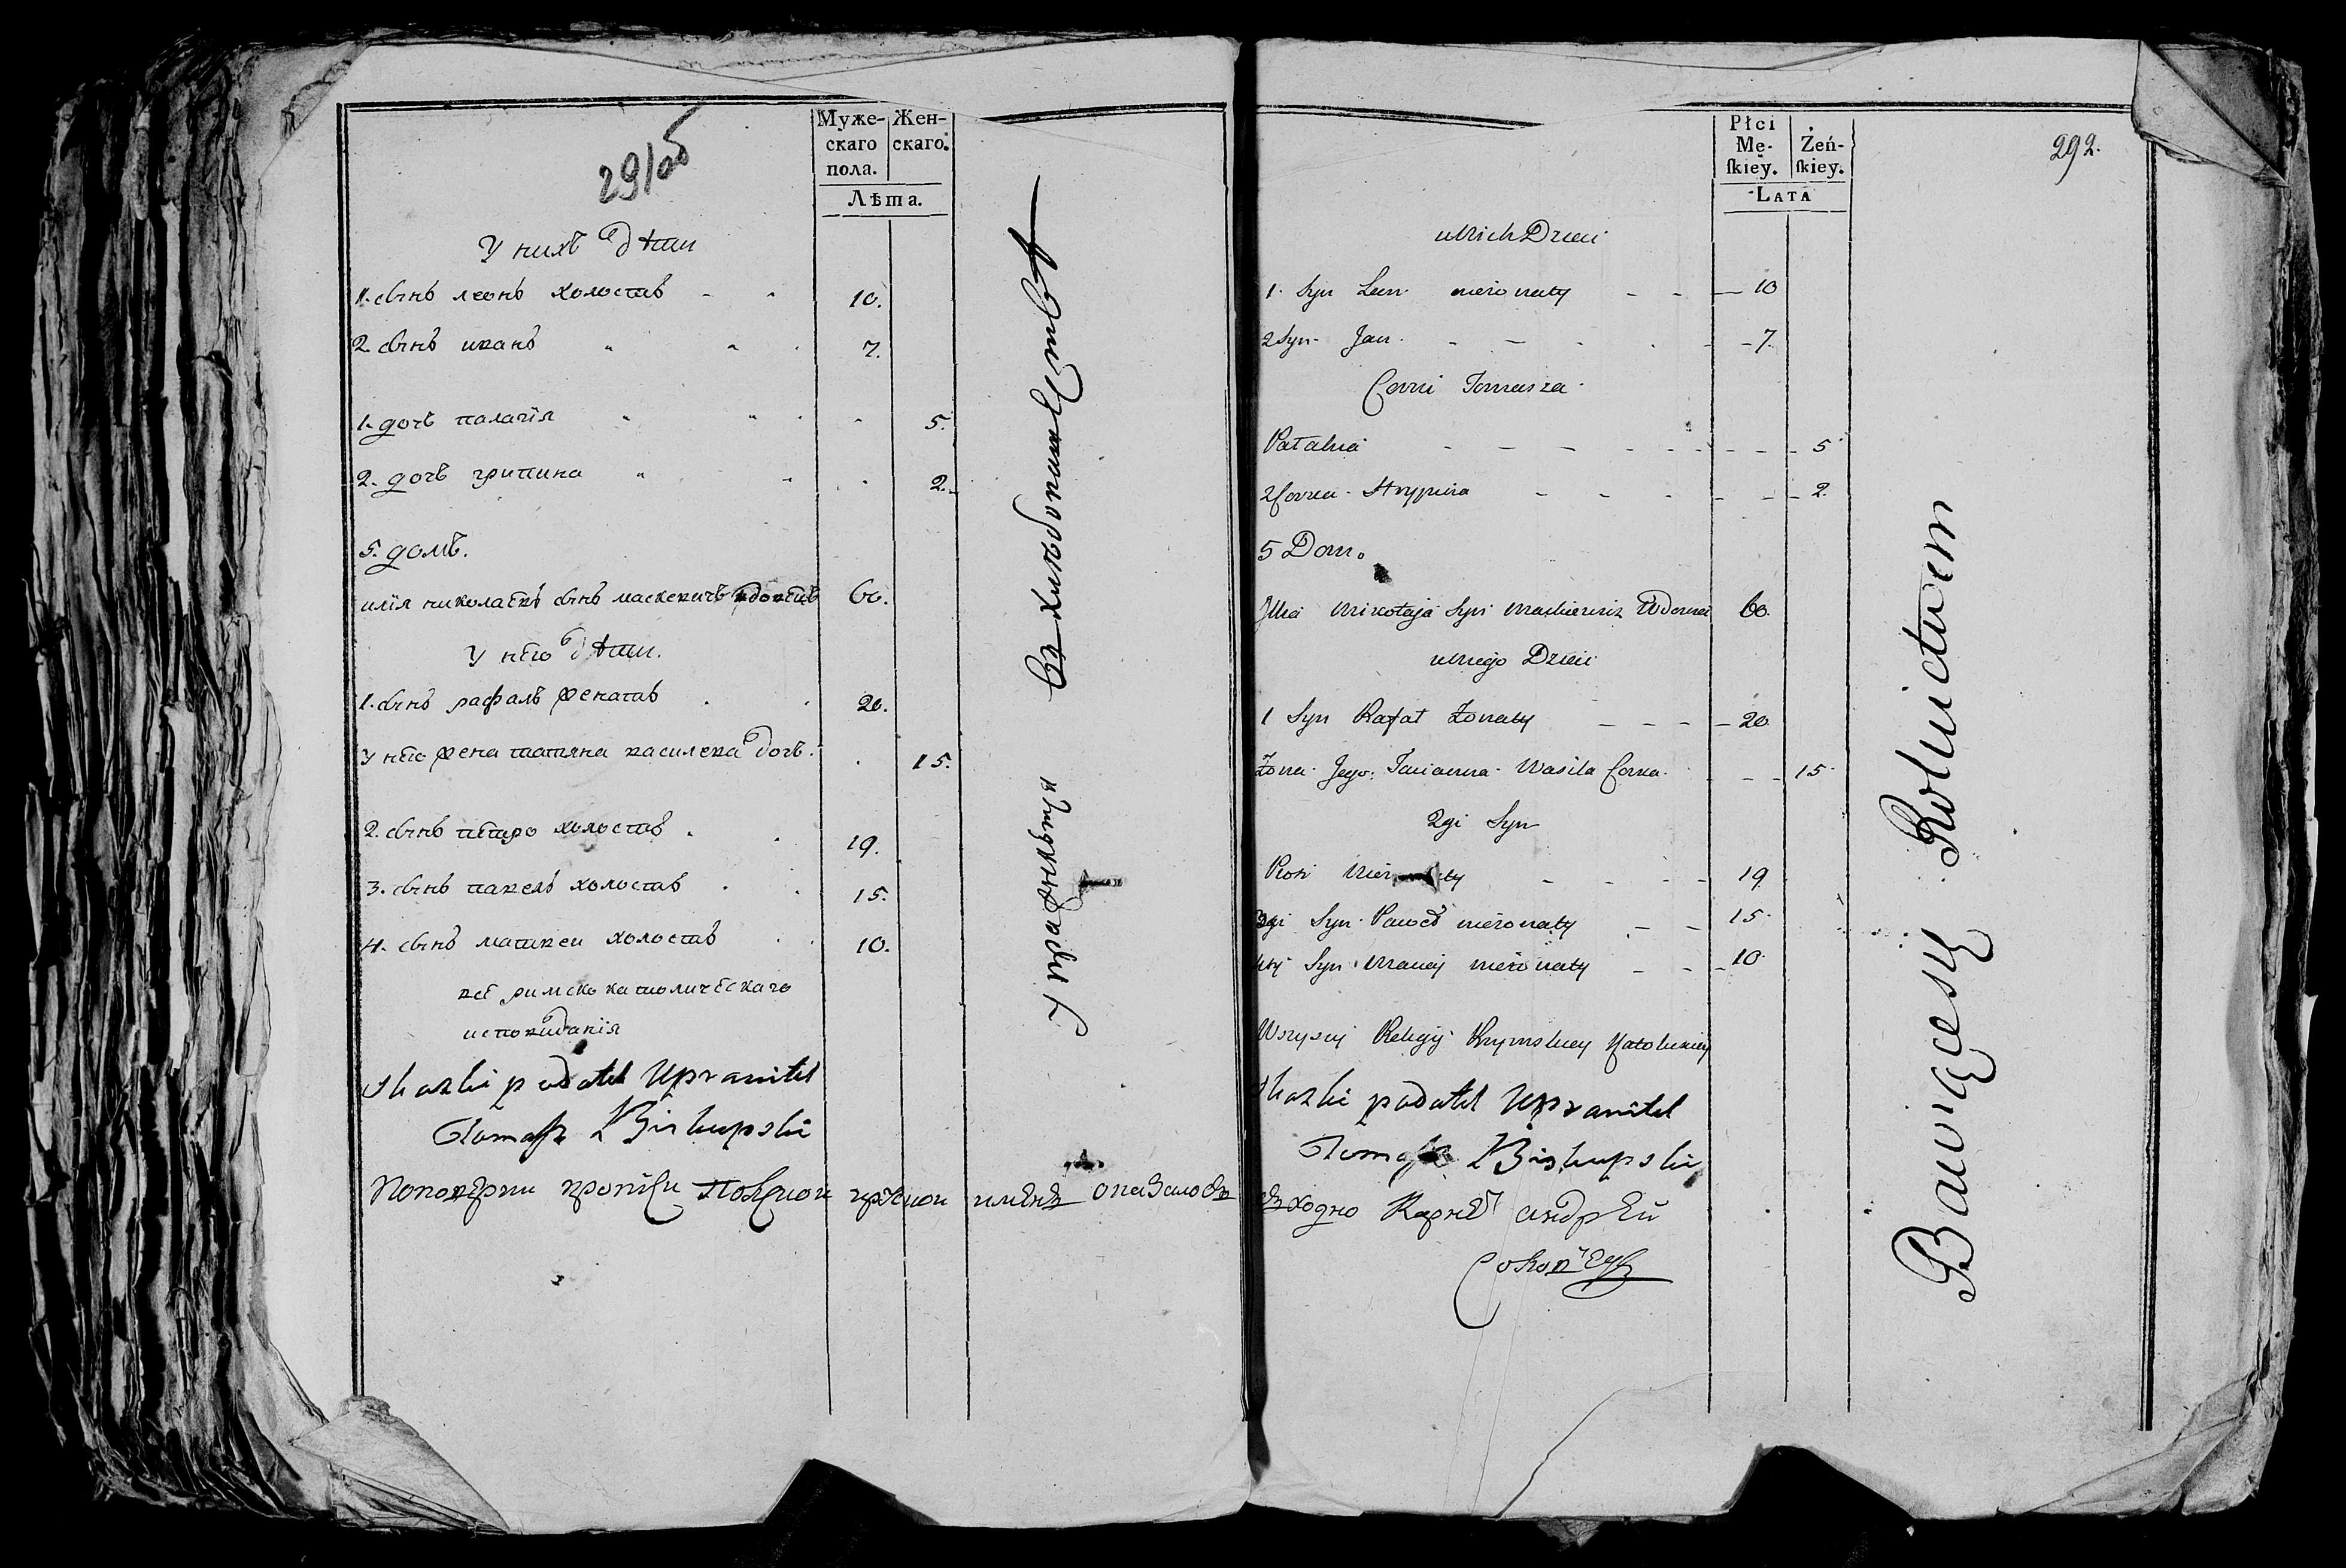 291об
Муже-
скаго
пола.
Жен-
скаго.
Лѣта.
У нихъ дѣти
1. сынъ леонъ холостъ - - 10.
2. сынъ иванъ " " . 7.
1. дочь палагія " " . - 5.
2. дочь грипина " - . . 2.
5. домъ.
илія николаевъ сынъ маскевичъ вдовецъ 60.
У него дѣти.
1. сынъ рафалъ женатъ . . 20.
У него жена татяна василева дочь . . 15.
2. сынъ петро холостъ . . 19.
3. сынъ павелъ холостъ . . 15.
4. сынъ матвеи холостъ . . 10.
всѣ римско католическаго
исповиданія
Skazki podatel Uprawitel
Tomasz Biskupski
Упражняютця
въ хлѣбопашествѣ
292.
Płci
Mę-
ſkiey.
Żeń-
ſkiey.
LATA
u Nich Dzieci
1. Syn Leon nieżonaty - - - 10
2 Syn Jan - - - . - 7.
Corki Tomasza
Pałahia - - - - - 5
2 Corka Hrypina - - - - - 2.
5 Dom.
Jllia Mikołaja Syn Maskiewicz Wdowiec 60.
u Niego Dzieci
1 Syn Rafał Żonaty - - - - 20
Żona Jego Tacianna Wasila Corka - - - 15
2gi Syn
Piotr - - - - 19
3ci Syn Paweł nieżonaty - - 15
4ty Syn Maciej nieżonaty - - - 10
Wszyscy Religij Rzymskiey Katolickiey
Skazki podatel Uprawitel
Tomasz Biskupski
Поповерки противу ревизии оказалось
сходно андрей
Bawiącesię Rolnictwem